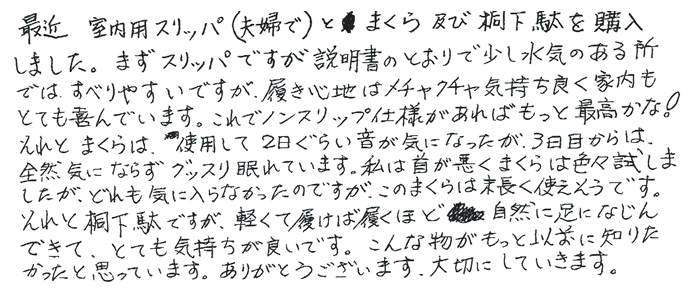 最近 室内用スリッパ(夫婦で)と まくら 及び 桐下駄を購入
しました。まずスリッパですが説明書のとおりで少し水気のある所
では、すべりやすいですが、履き心地はメチャクチャ気持ち良く家内も
とても喜んでいます。これでノンスリップ仕様があればもっと最高かな!
それと まくらは、使用して2日ぐらい音が気になったが、3日目からは、
全然気にならず グッスリ眠れています。私は首が悪くまくらは色々試しま
したが、どれも気に入らなかったのですが、このまくらは末長く使えそうです。
それと桐下駄ですが、軽くて履けば履くほど 自然に足になじん
できて、とても気持ちが良いです。こんな物がもっと以前に知りた
かったと思っています。ありがとうございます、大切にしていきます。